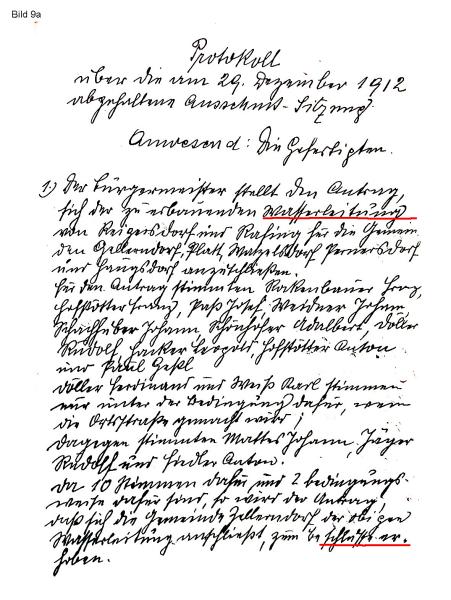 Bild 9a
Protokoll
über die am 29. Dezember 1912
abgehaltene Ausschuß-Sitzung.
Anwesend: Die Gefertigten.
1.) Der Bürgermeister stellt den Antrag,
sich der zu erbauenden Wasserleitung
von Reigersdorf und Rafing für die Gemein
den Zellerndorf, Platt, Watzelsdorf Pernersdorf
und Haugsdorf anzuschließen.
Für den Antrag stimmten Rockenbauer Franz,
Hofstötter Franz, Paß Josef, Weidner Johann
Schachhuber Johann Schönhofer Adalbert, Döller
Rudolf, Hacker Leopold Hofstötter Anton
und Paul Geßl
Döller Ferdinand und Weiß Karl stimmen
nur unter der Bedingung dafür, wenn
die Ortsstraße gemacht wird;
dagegen stimmten Mattes Johann, Jäger
Rudolf und Fiedler Anton.
Da 10 Stimmen dafür und 2 bedingungs-
weise dafür sind, so wird der Antrag
daß sich die Gemeinde Zellerndorf der obigen
Wasserleitung anschließt, zum Beschlusse er-
hoben.